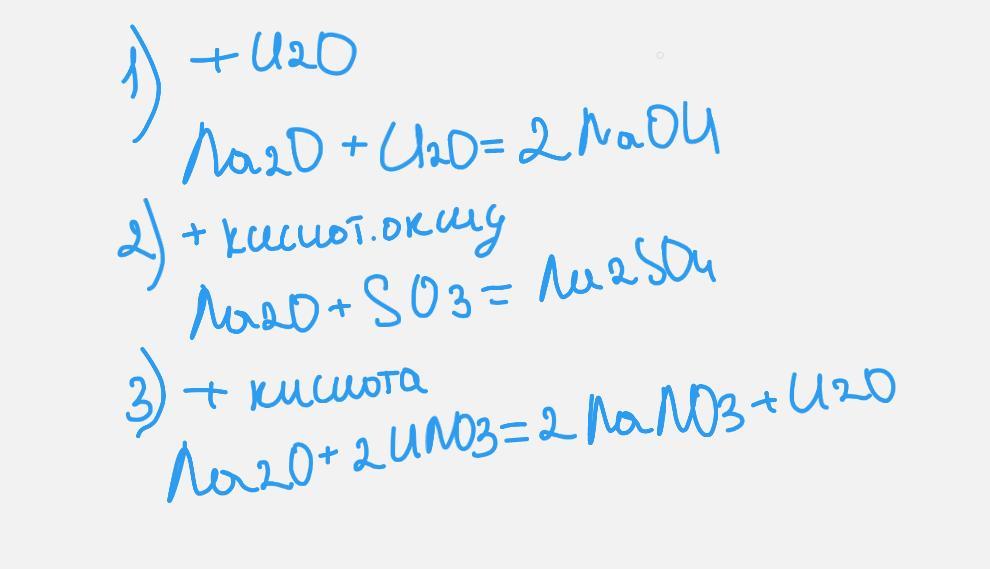 1) + H2O
Na2O + H2O = 2 NaOH
2) + кислот. оксид
Na2O + SO3 = Na2SO4
3) + кислота
Na2O + 2HNO3 = 2NaNO3 + H2O